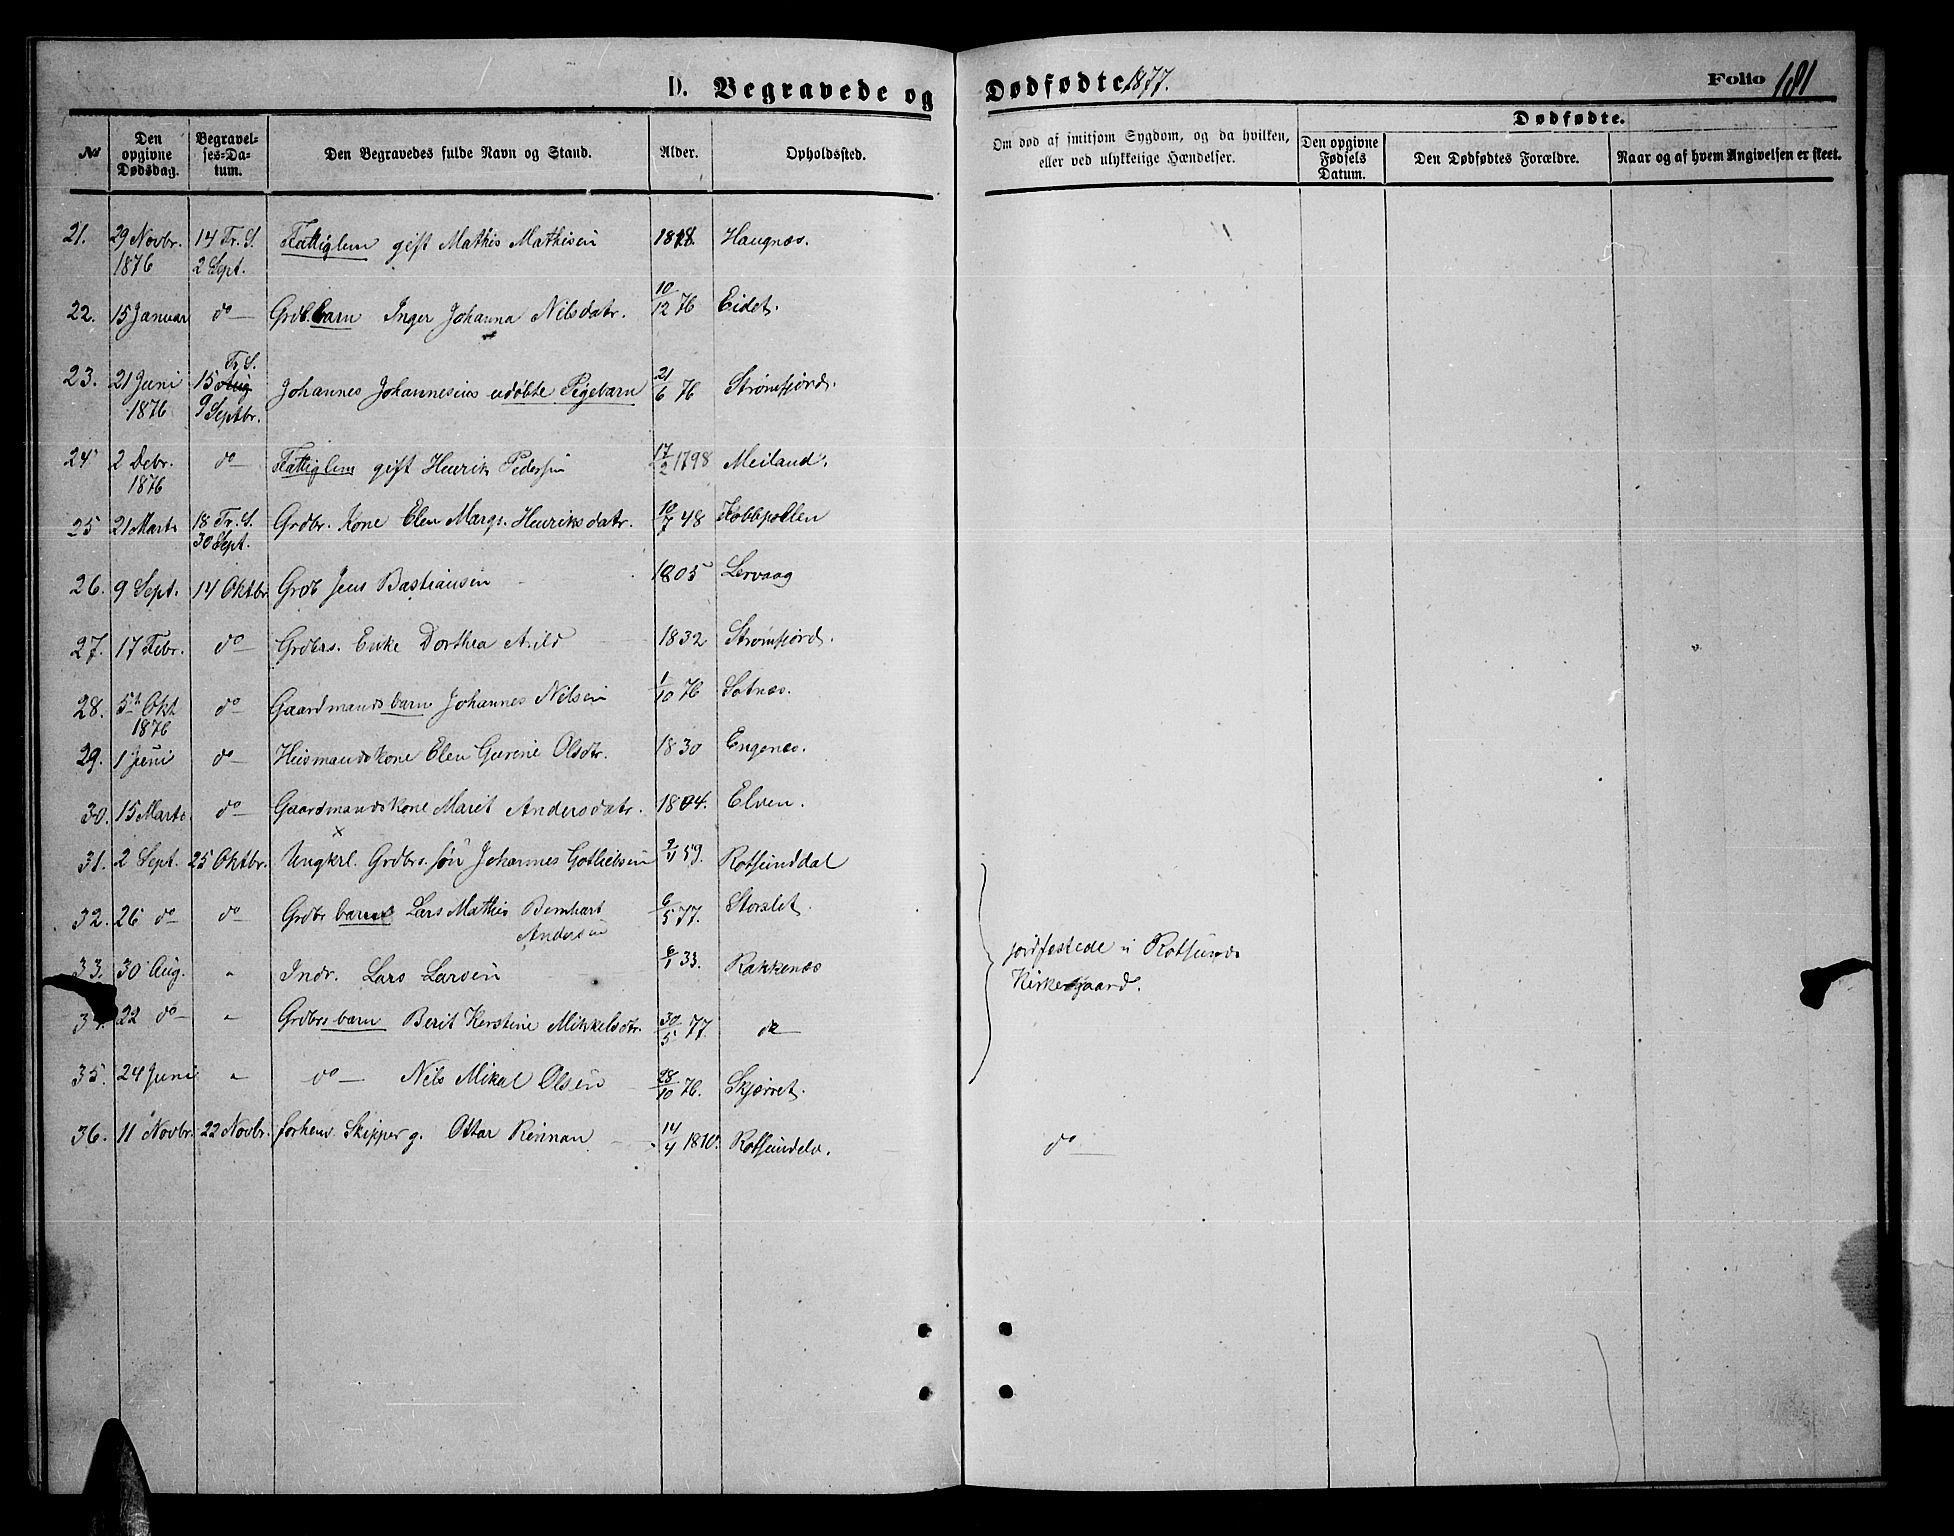 D. Begravede og Dødfødte 1877. Folio 181
No
Den opgivne Dødsdag.
Begravelses-Datum.
Den Begravedes fulde Navn og Stand.
Alder.
Opholdssted.
Om død af smitsom Sygdom, og da hvilken, eller ved ulykkelige Hændelser.
Dødfødte.
Den opgivne Fødsels Datum.
Den Dødfødtes Forældre.
Naar og af hvem Angivelsen er skeet.
21. 29 Novbr. 1876 14 Tr. S. 2 Sept. Fattiglem gift Mathis Mathisen 1818. Haugnæs.
22. 15 Januar do Grdb. barn Inger Johanna Nilsdatr. 10/12 76 Eidet.
23. 21 Juni 1876 15 Tr. S. 9 Septbr. Johannes Johannesens udøbte Pigebarn 21/6 76 Strømfjord.
24. 2 Debr. 1876 do Fattiglem gift Henrik Pedersen 17/2 1798 Meiland.
25 21 Marts 18 Tr. S. 30 Sept. Grdbr. Kone Elen Margr. Henriksdatr. 10/7 48 Kobbepollen
26. 9 Sept. 14 Oktbr. Grdb Jens Bastiansen 1805 Lervaag
27. 17 Febr. do Grdbrs. Enke Dorthea Arild 1832 Strømfjord.
28. 5te Okt 1876 do Gaardmandsbarn Johannes Nilsen 1/10 76 Sotnæs.
29. 1 Juni do Husmandskone Elen Gurine Olsdtr. 1830 Engenæs.
30. 15 Marts do Gaardmandskone Marit Andersdatr. 1804. Elven.
31. 2 Sept. 25 Oktbr. Ungkrl. Grdbrs. søn Johannes Gotliebsen 2/1 59. Rotsunddal
32. 26 do do Grdbr barn Lars Mathis Bernhart Andersen 6/5 77. Storslet.
33. 30 Aug. " Indr. Lars Larsen 6/1 33. Rakkenæs
jordfæstede i Rotsunds Kirkegaard.
34. 22 do " Grdbrsbarn Berit Kerstine Mikkelsdtr. 30/5 77. do
35. 24 Juni " do Nils Mikal Olsen 28/10 76. Skjærvet.
36. 11 Novbr. 22 Novbr. forhenv. Skipper g. Ottar Rennan 14/4 1810. Rotsundelv. do